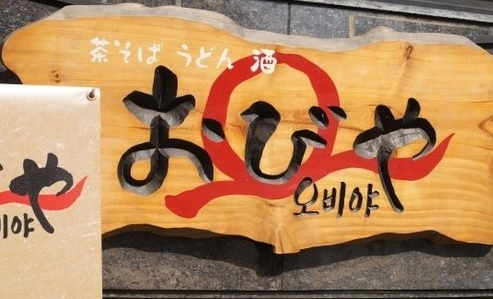 茶そば うどん 酒
おびや
오비야
びや
비야